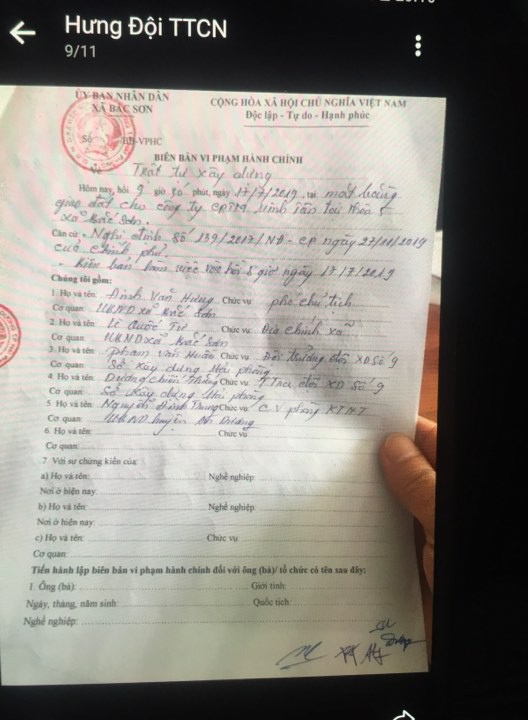 Hưng Đội TTCN
9/11
ỦY BAN NHÂN DÂN
XÃ BẮC SƠN
CỘNG HÒA XÃ HỘI CHỦ NGHĨA VIỆT NAM
Độc lập - Tự do - Hạnh phúc
Số /BB-VPHC
BIÊN BẢN VI PHẠM HÀNH CHÍNH
Về Trật tự xây dựng
Hôm nay, hồi 9 giờ 30 phút, ngày 17/7/2019, tại mặt bằng
giao đất cho công ty CPTM Minh Tân tại thôn
xã Bắc Sơn.
Căn cứ: Nghị định số 139/2017/NĐ-CP ngày 27/11/2019
của chính phủ.
- Biên bản làm việc vào hồi 8 giờ ngày 17/7/2019
Chúng tôi gồm:
1. Họ và tên: Đinh Văn Hùng Chức vụ phó chủ tịch
Cơ quan: UBND xã Bắc Sơn
2. Họ và tên: Lê Quốc Tư Chức vụ: Địa chính xã
Cơ quan: UBND xã Bắc Sơn
3. Họ và tên: Phạm Văn Huân Chức vụ: Đội trưởng đội XD Số 9
Cơ quan: Sở xây dựng Hải phòng
4. Họ và tên: Dương Chiến Thắng Chức vụ: TTra đội XD Số 9
Cơ quan: Sở Xây dựng Hải phòng
5. Họ và tên: Nguyễn Đình Trung Chức vụ: CV phòng KTHT
Cơ quan: UBND huyện An Dương
6. Họ và tên: Chức vụ
Cơ quan:
7. Với sự chứng kiến của:
a) Họ và tên: Nghề nghiệp:
Nơi ở hiện nay:
b) Họ và tên: Nghề nghiệp:
Nơi ở hiện nay:
c) Họ và tên: Chức vụ:
Cơ quan:
Tiến hành lập biên bản vi phạm hành chính đối với ông (bà)/ tổ chức có tên sau đây:
1. Ông (bà): Giới tính:
Ngày, tháng, năm sinh: Quốc tịch:
Nghề nghiệp: